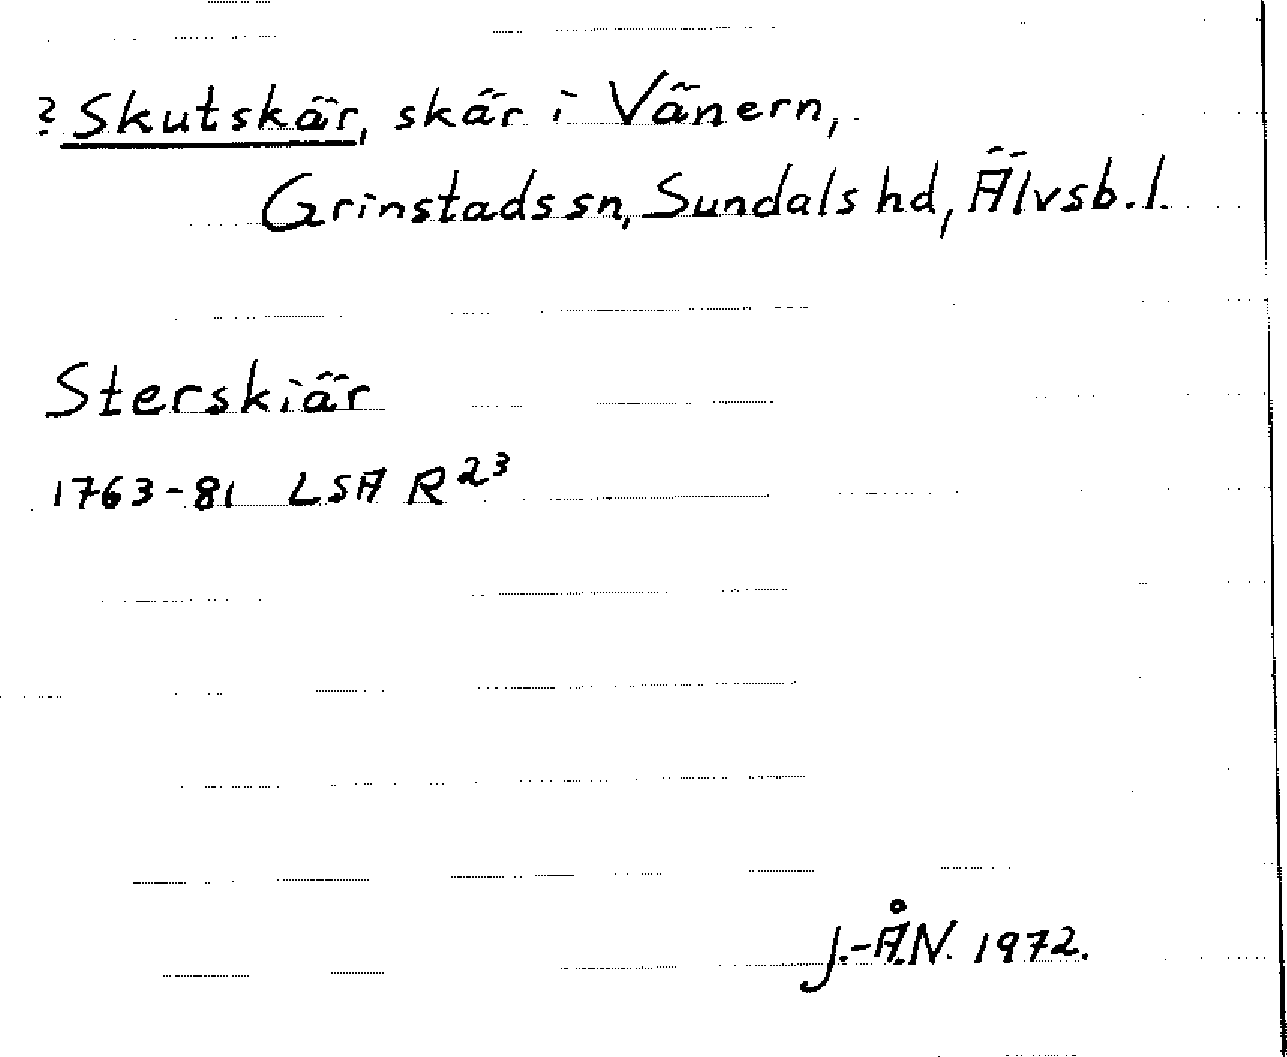 ? Skutskär, skär i Vänern,
Grinstads sn, Sundals hd, Älvsb. l.
Sterskiär
1763-81 LSA R 23
J.-Å.N. 1972.